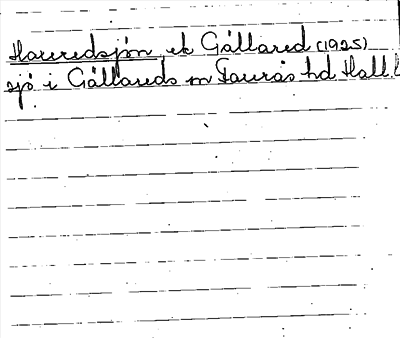 Harredsjön, ek Gällared (1925)
sjö i Gällareds sn Faurås hd Hall.l